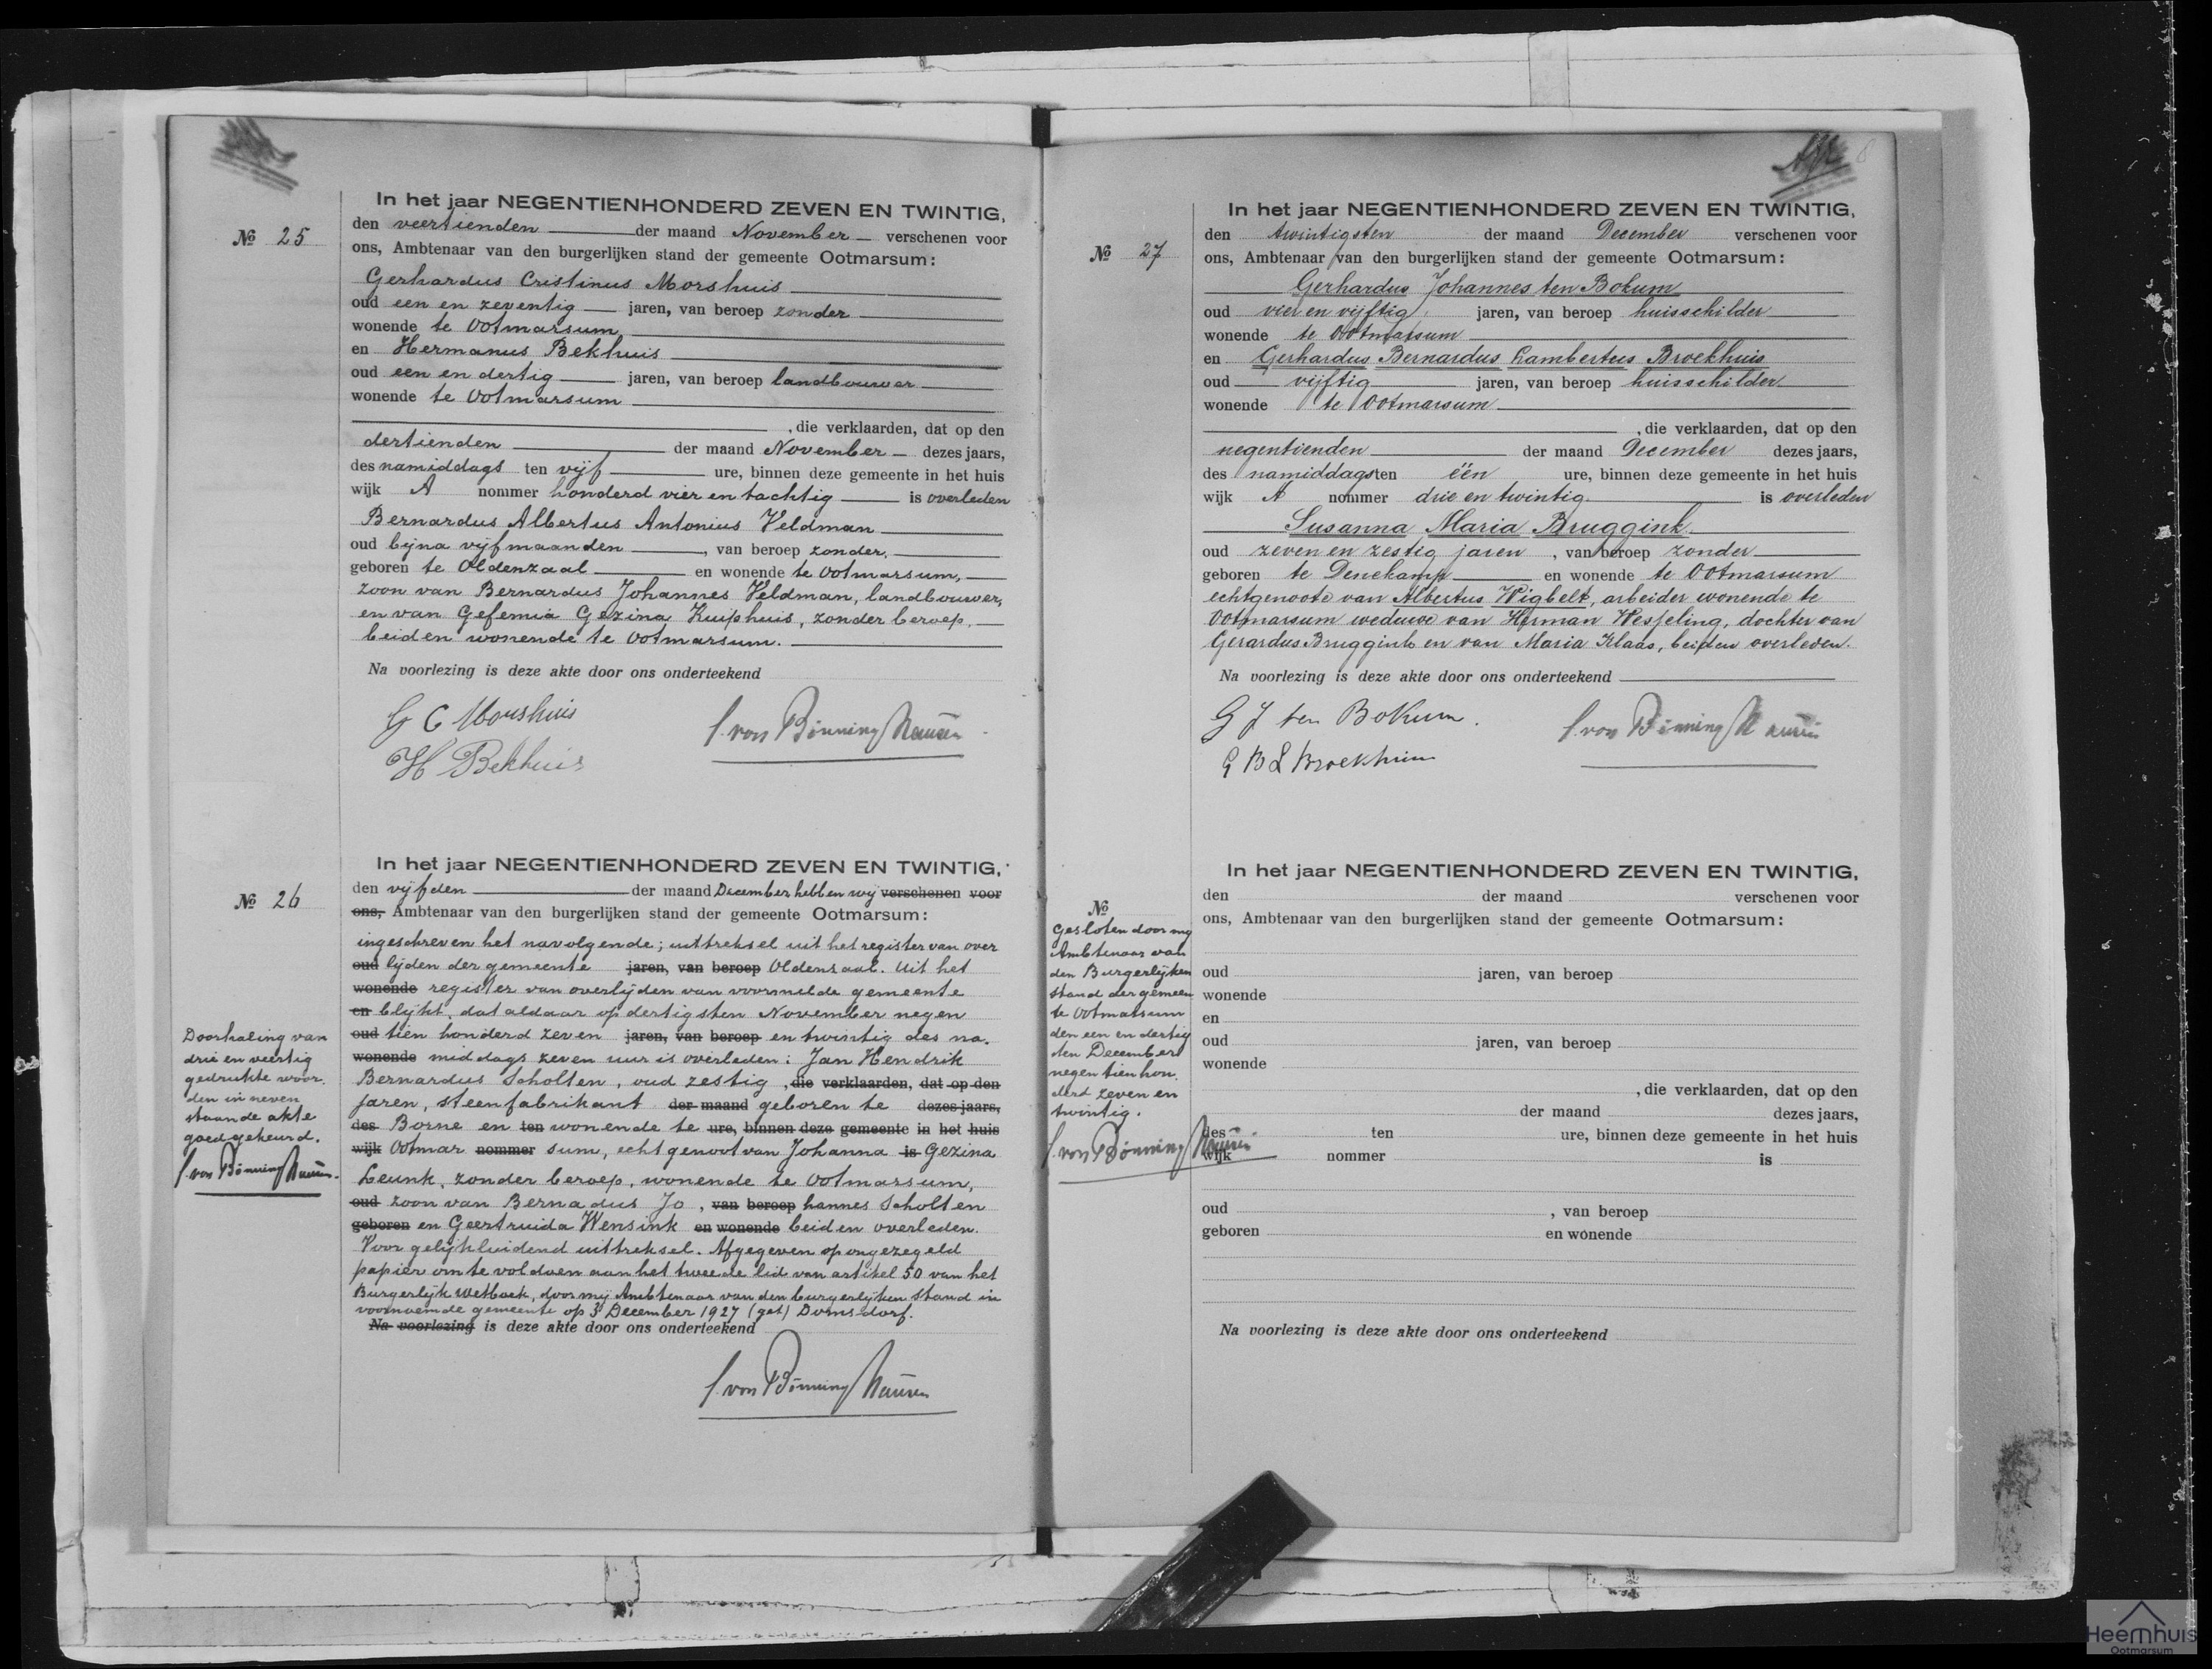 In het jaar NEGENTIENHONDERD ZEVEN EN TWINTIG,
No 25
den veertienden der maand November verschenen voor
ons, Ambtenaar van den burgerlijken stand der gemeente Ootmarsum:
Gerhardus Cristinus Morshuis
oud een en zeventig jaren, van beroep zonder
wonende te Ootmarsum
en Hermanus Bekhuis
oud een en dertig jaren, van beroep landbouwer
wonende te Ootmarsum
, die verklaarden, dat op den
dertienden der maand November dezes jaars,
des namiddags ten vijf ure, binnen deze gemeente in het huis
wijk A nommer honderd vier en tachtig is overleden
Bernardus Albertus Antonius Veldman
oud bijna vijf maanden, van beroep zonder,
geboren te Oldenzaal en wonende te Ootmarsum,
zoon van Bernardus Johannes Veldman, landbouwer,
en van Gefemia Gezina Kuiphuis, zonder beroep,
beiden wonende te Ootmarsum.
Na voorlezing is deze akte door ons onderteekend
G C Morshuis
H Bekhuis
S. von Bönninghausen
In het jaar NEGENTIENHONDERD ZEVEN EN TWINTIG,
No 26
den vijfden der maand December hebben wij verschenen voor
ons, Ambtenaar van den burgerlijken stand der gemeente Ootmarsum:
ingeschreven het navolgende; uittreksel uit het register van over
oud lijden der gemeente jaren, van beroep Oldenzaal. Uit het
wonende register van overlijden van voormelde gemeente
en blijkt, dat aldaar op dertigsten November negen
oud tien honderd zeven jaren, van beroep en twintig des na.
wonende middags zeven uur is overleden: Jan Hendrik
Bernardus Scholten, oud zestig, die verklaarden, dat op den
jaren, steenfabrikant der maand geboren te dezes jaars,
des Borne en ten wonende te ure, binnen deze gemeente in het huis
wijk Ootmar nommer sum, echtgenoot van Johanna is Gezina
Leunk, zonder beroep, wonende te Ootmarsum,
oud zoon van Bernadus Jo, van beroep hannes Scholten
geboren en Geertruida Wensink en wonende beiden overleden.
Voor gelijkluidend uittreksel. Afgegeven op ongezegeld
papier om te voldoen aan het tweede lid van artikel 50 van het
Burgerlijk Wetboek, door mij Ambtenaar van den burgerlijken stand in
voornoemde gemeente op 3 December 1927 (get) Domsdorf.
Na voorlezing is deze akte door ons onderteekend
S. von Bönninghausen
Doorhaling van
drie en veertig
gedrukte woor.
den in neven
staande akte
goedgekeurd.
S. von Bönninghausen.
In het jaar NEGENTIENHONDERD ZEVEN EN TWINTIG,
No 27
den twintigsten der maand December verschenen voor
ons, Ambtenaar van den burgerlijken stand der gemeente Ootmarsum:
Gerhardus Johannes ten Bokum
oud vier en vijftig jaren, van beroep huisschilder
wonende te Ootmarsum
en Gerhardus Bernardus Lambertus Broekhuis
oud vijftig jaren, van beroep huisschilder
wonende te Ootmarsum
, die verklaarden, dat op den
negentienden der maand December dezes jaars,
des namiddags ten één ure, binnen deze gemeente in het huis
wijk A nommer drie en twintig is overleden
Susanna Maria Bruggink
oud zeven en zestig jaren, van beroep zonder
geboren te Denekamp en wonende te Ootmarsum
echtgenoote van Albertus Wigbelt, arbeider wonende te
Ootmarsum weduwe van Herman Wesseling, dochter van
Gerardus Bruggink en van Maria Klaas, beiden overleden.
Na voorlezing is deze akte door ons onderteekend
G J ten Bokum.
G B L Broekhuis
S. von Bönninghausen
In het jaar NEGENTIENHONDERD ZEVEN EN TWINTIG,
No
den der maand verschenen voor
ons, Ambtenaar van den burgerlijken stand der gemeente Ootmarsum:
oud jaren, van beroep
wonende
en
oud jaren, van beroep
wonende
, die verklaarden, dat op den
der maand dezes jaars,
des ten ure, binnen deze gemeente in het huis
wijk nommer is
oud , van beroep
geboren en wonende
Na voorlezing is deze akte door ons onderteekend
Gesloten door mij
Ambtenaar van
den Burgerlijken
stand der gemeen
te Ootmarsum
den een en dertig
sten December
negentienhon.
derd zeven en
twintig.
S. von Bönninghausen
Heemhuis
Ootmarsum